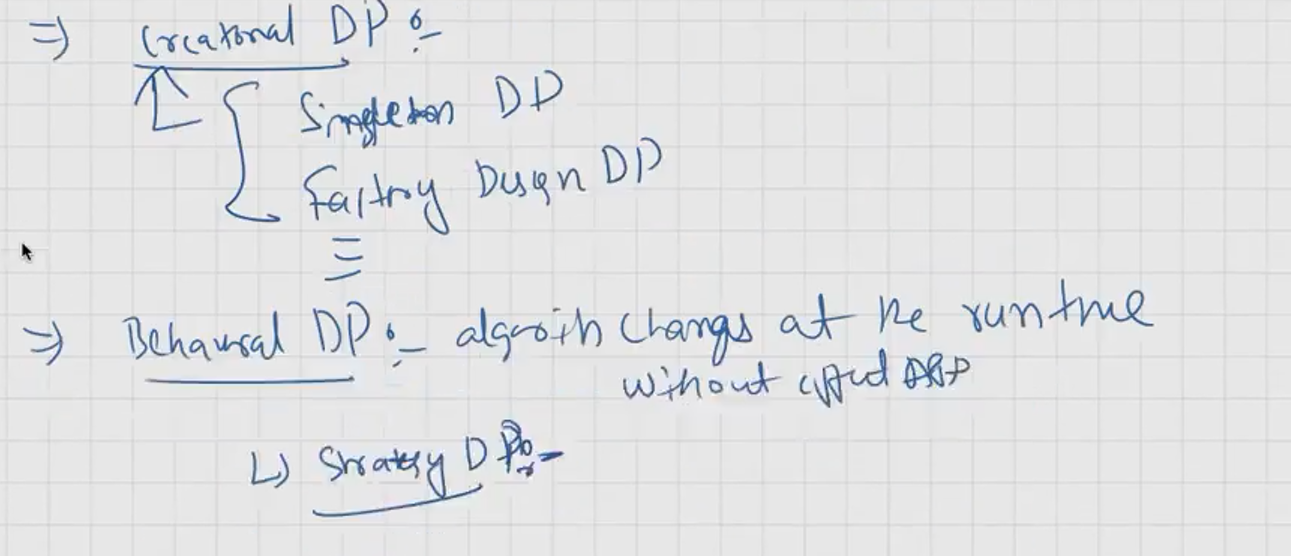 ⇒ Creatonal DP :-
Singleton DD
Factry Design DP
⇒ Behavioral DP :- algorith changes at the runtime
without
↳ Strategy DP :-